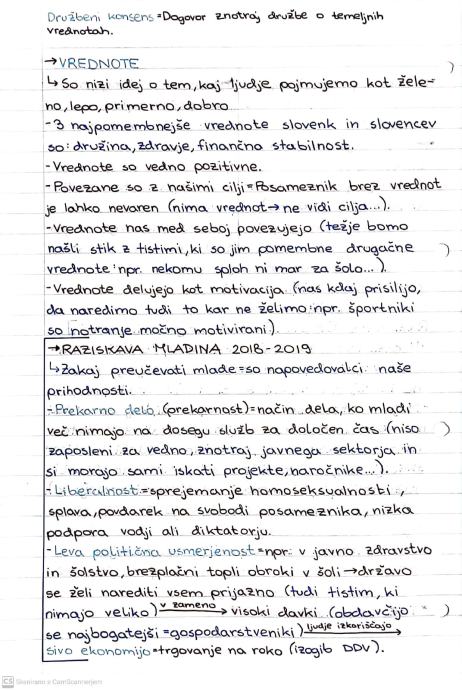 Družbeni konsens = Dogovor znotraj družbe o temeljnih
vrednotah.
→ VREDNOTE
↳ So nizi idej o tem, kaj ljudje pojmujemo kot žele-
no, lepo, primerno, dobro
- 3 najpomembnejše vrednote slovenk in slovencev
so: družina, zdravje, finančna stabilnost.
- Vrednote so vedno pozitivne.
- Povezane so z našimi cilji = Posameznik brez vrednot
je lahko nevaren (nima vrednot → ne vidi cilja...).
- Vrednote nas med seboj povezujejo (težje bomo
našli stik z tistimi, ki so jim pomembne drugačne
vrednote: npr. nekomu sploh ni mar za šolo...).
- Vrednote delujejo kot motivacija (nas kdaj prisilijo,
da naredimo tudi to kar ne želimo: npr. športniki
so notranje močno motivirani).
→ RAZISKAVA MLADINA 2018-2019
↳ Zakaj preučevati mlade = so napovedovalci naše
prihodnosti.
- Prekarno delo (prekarnost) = način dela, ko mladi
več nimajo na dosegu služb za določen čas (niso
zaposleni za vedno, znotraj javnega sektorja in
si morajo sami iskati projekte, naročnike...).
- Liberalnost = sprejemanje homoseksualnosti,
splava, povdarek na svobodi posameznika, nizka
podpora vodji ali diktatorju.
- Leva politična usmerjenost = npr. v javno zdravstvo
in šolstvo, brezplačni topli obroki v šoli → država
se želi narediti vsem prijazno (tudi tistim, ki
nimajo veliko) v zameno → visoki davki (obdavčijo
se najbogatejši = gospodarstveniki) ljudje izkoriščajo →
sivo ekonomijo = trgovanje na roko (izogib DDV).
CS Skenirano s CamScannerjem